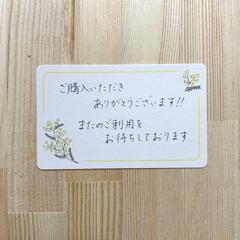 ご購入いただき
ありがとうございます!!
またのご利用を
お待ちしております